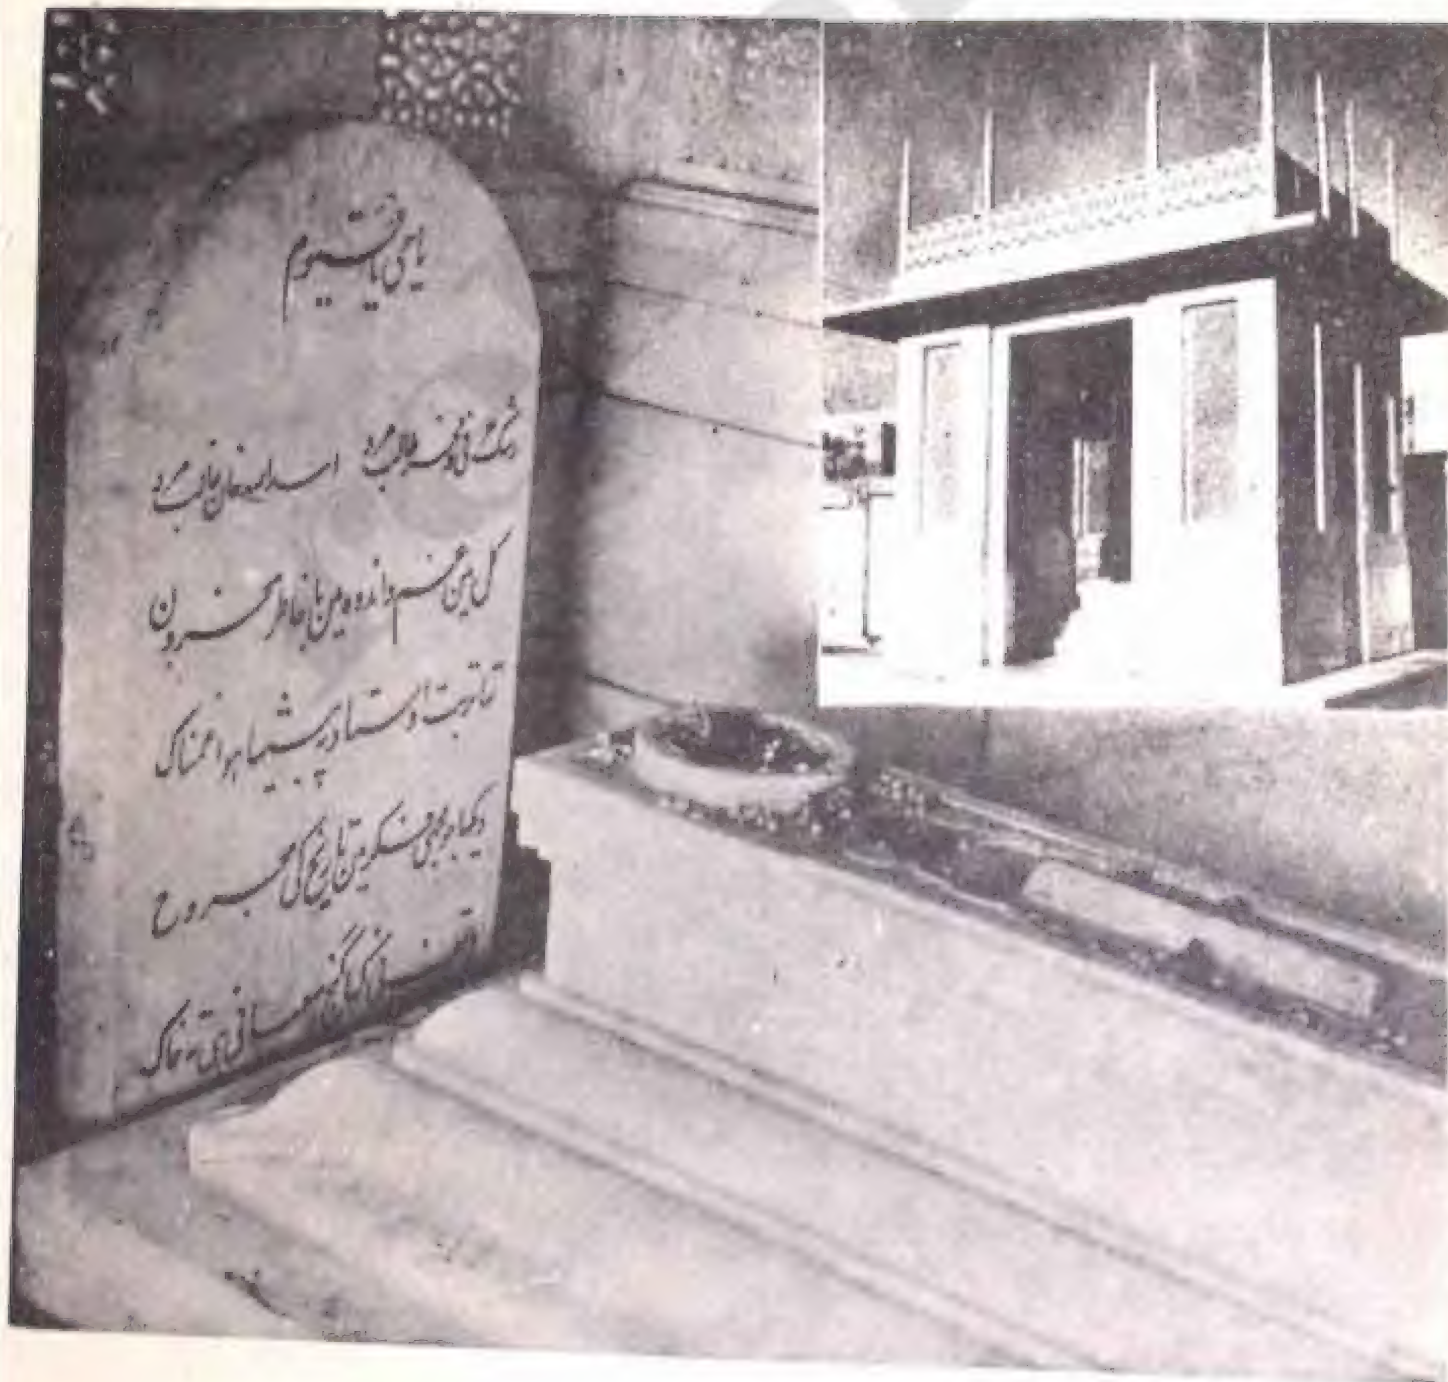 یا حی یا قیوم
رشک عرفی و فخر طالب مرد اسد اللہ خان غالب مرد
کل میں غم و اندوہ میں با خاطر محزون
تھا تربت استاد پہ بیٹھا ہوا غمناک
دیکھا جو مجھے فکر میں تاریخ کی مجروح
ہاتف نے کہا گنج معانی ہی تہ خاک